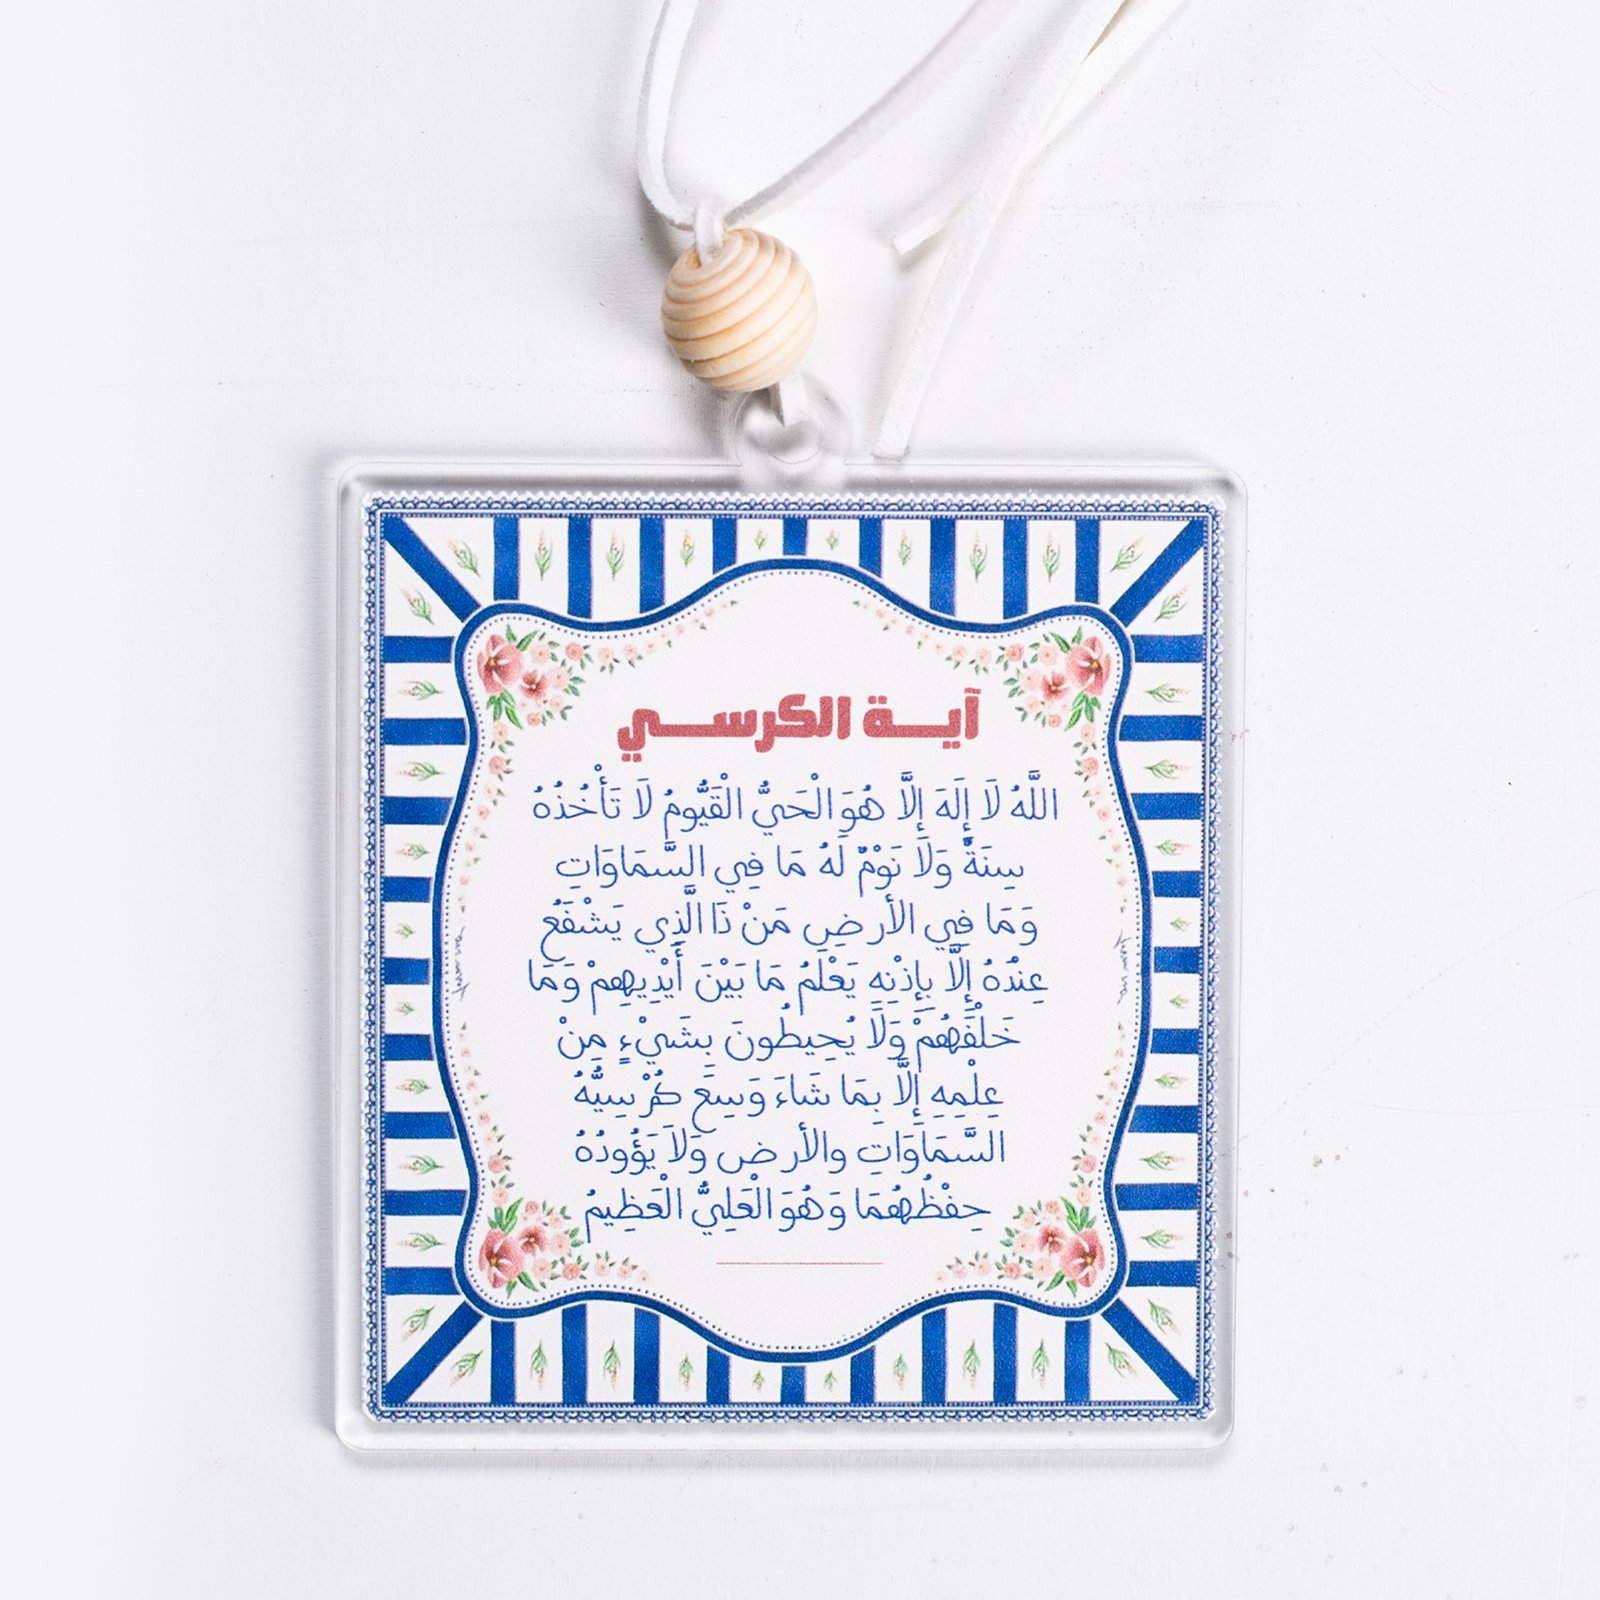 آية الكرسي
اللَّهُ لَا إِلَهَ إِلَّا هُوَ الْحَيُّ الْقَيُّومُ لَا تَأْخُذُهُ
سِنَةٌ وَلَا نَوْمٌ لَهُ مَا فِي السَّمَاوَاتِ
وَمَا فِي الأرضِ مَنْ ذَا الَّذِي يَشْفَعُ
عِنْدَهُ إِلَّا بِإِذْنِهِ يَعْلَمُ مَا بَيْنَ أَيْدِيهِمْ وَمَا
خَلْفَهُمْ وَلَا يُحِيطُونَ بِشَيْءٍ مِنْ
عِلْمِهِ إِلَّا بِمَا شَاءَ وَسِعَ كُرْسِيُّهُ
السَّمَاوَاتِ والأرضِ وَلَا يَؤُودُهُ
حِفْظُهُمَا وَهُوَ الْعَلِيُّ الْعَظِيمُ